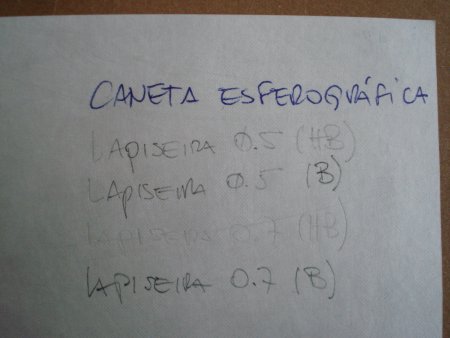 CANETA ESFEROGRÁFICA
LAPISEIRA 0.5 (HB)
LAPISEIRA 0.5 (B)
LAPISEIRA 0.7 (HB)
LAPISEIRA 0.7 (B)